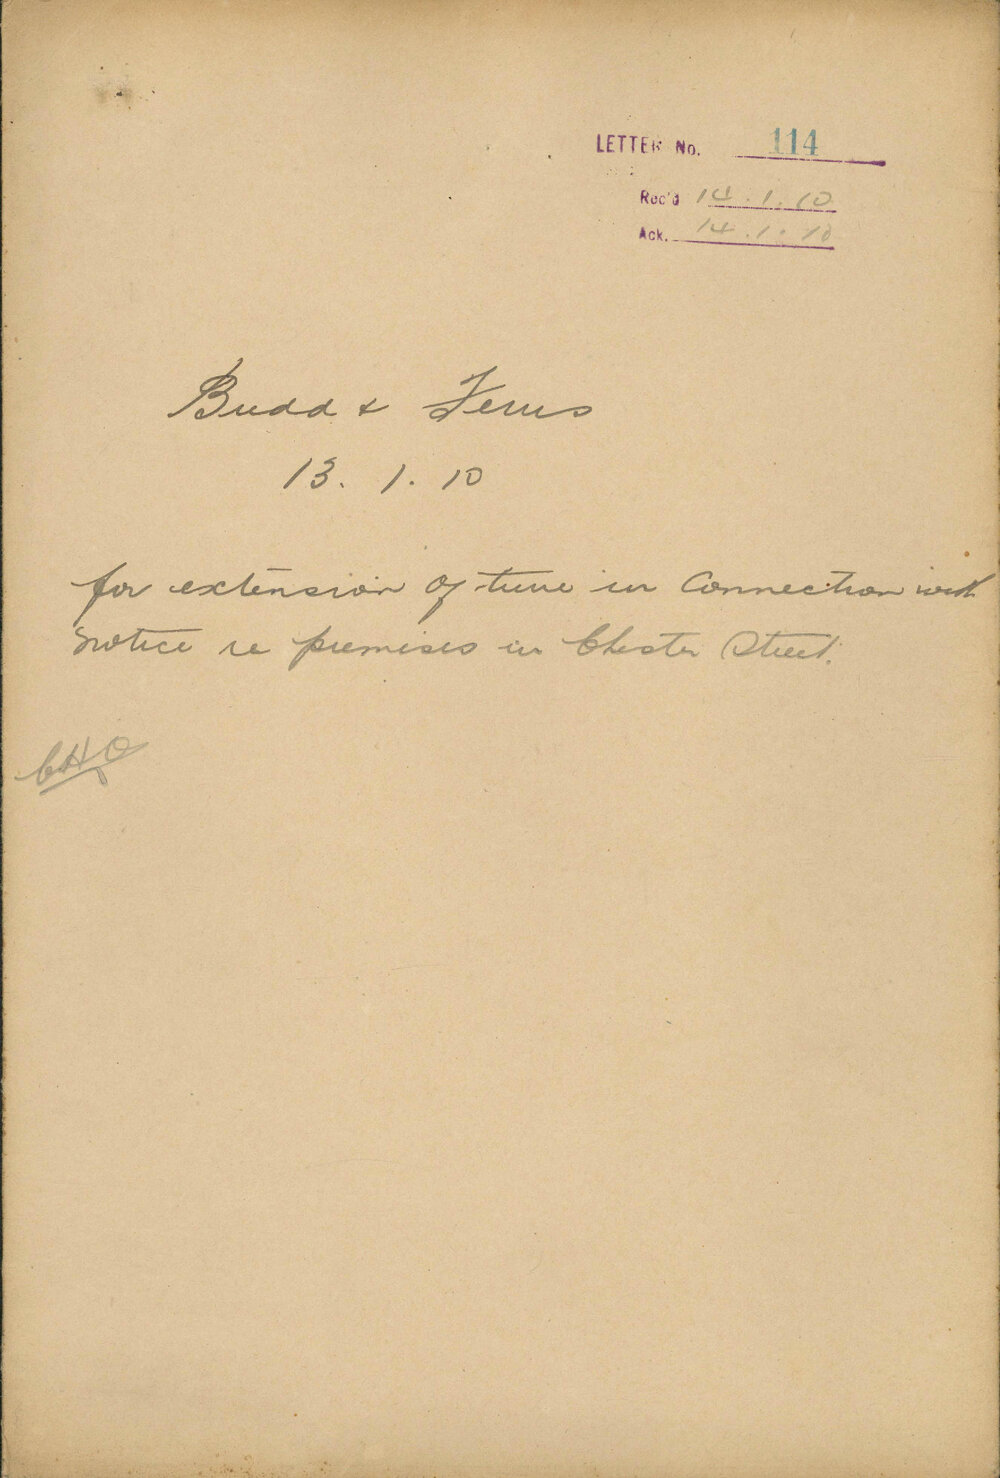 LETTER No. 114
Rec'd 14.1.10
Ack. 14.1.10
Budd & Ferris
13.1.10
for extension of time in Connection with
notice re premises in Chester Street.
CHO